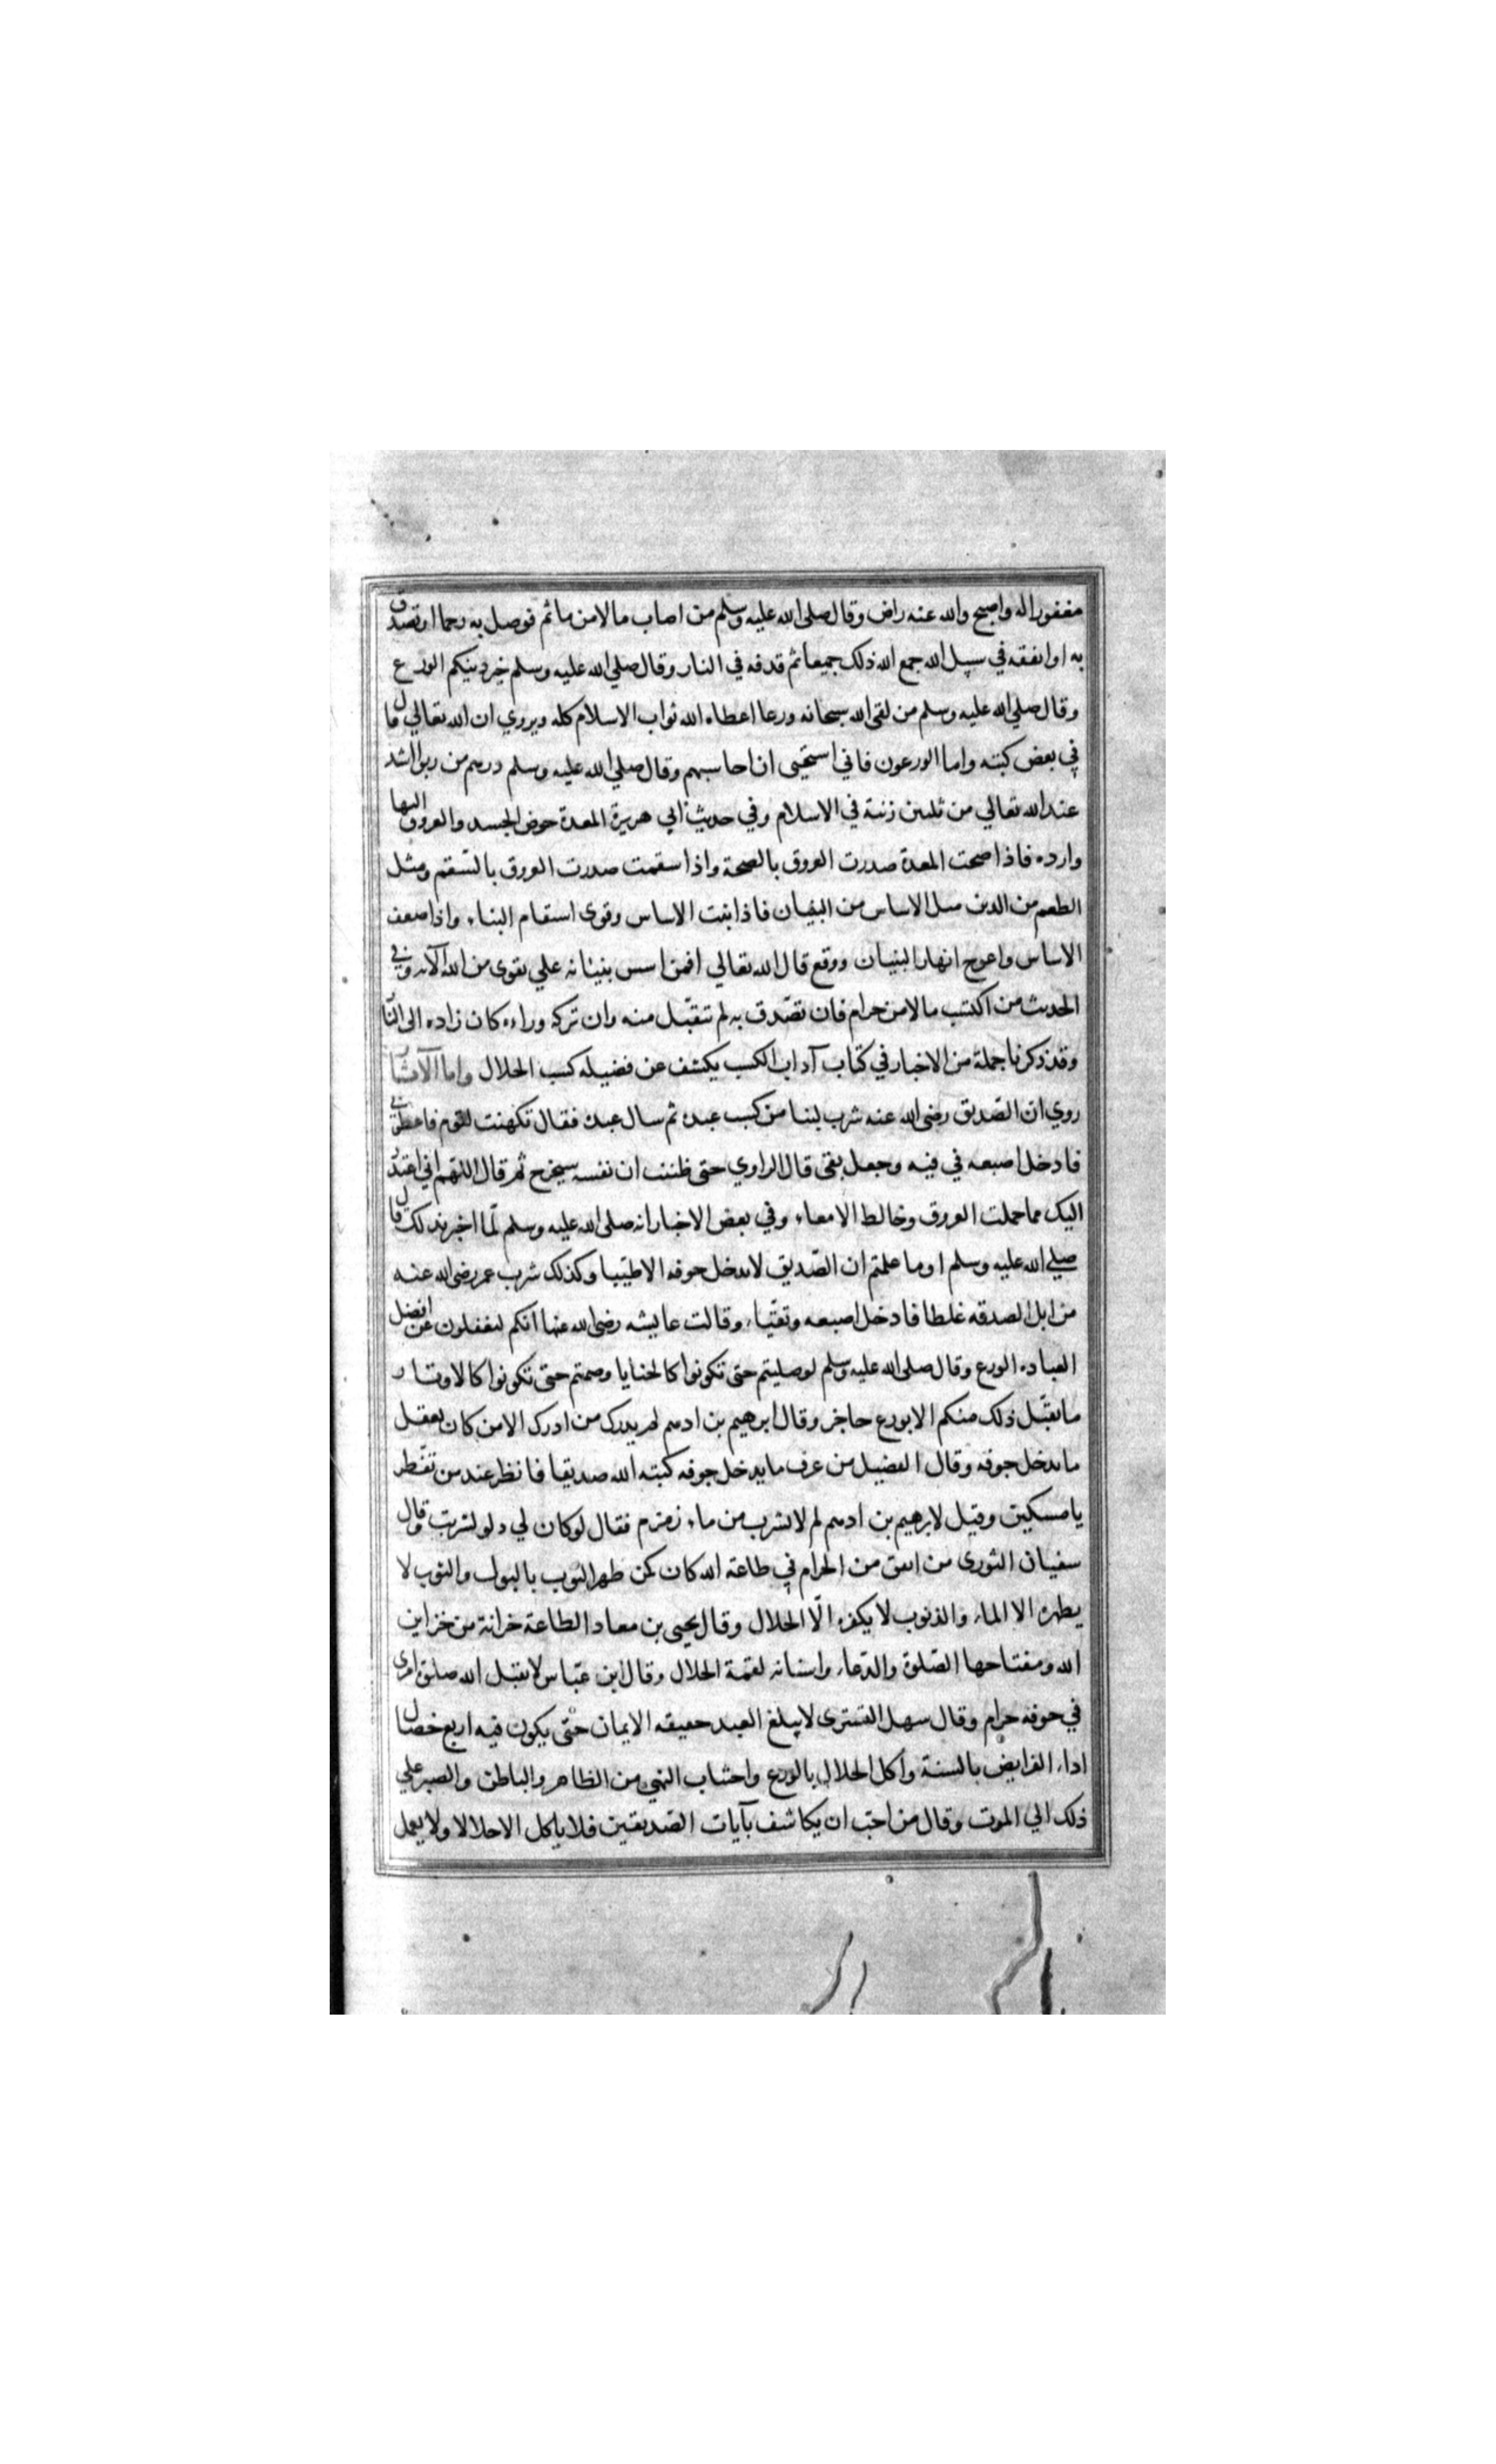 مغفورا له واصبح والله عنه راض وقال صلى الله عليه وسلم من اصاب مالا من ماثم فوصل به رحما او تصدق
به او انفقه في سبيل الله جمع الله ذلك جميعا ثم قذفه في النار وقال صلي الله عليه وسلم خير دينكم الورع
وقال صلي الله عليه وسلم من لقى الله سبحانه ورعا اعطاه الله ثواب الاسلام كله ويروي ان الله تعالي قال
في بعض كتبه واما الورعون فاني استحيى ان احاسبهم وقال صلي الله عليه وسلم درهم من ربوا اشد
عند الله تعالي من ثلثين زنية في الاسلام وفي حديث ابي هريرة المعدة حوض الجسد والعروق اليها
وارده فاذا صحت المعدة صدرت العروق بالصحة واذا سقمت صدرت العروق بالسقم ومثل
الطعم من الدين مثل الاساس من البنيان فاذا ثبت الاساس وقوى استقام البناء واذا ضعف
الاساس واعوج انهار البنيان ووقع قال الله تعالي افمن اسس بنيانه علي تقوى من الله الآية وفي
الحديث من اكتسب مالا من حرام فان تصدق به لم تتقبل منه وان تركه وراءه كان زاده الى النار
وقد ذكرنا جملة من الاخبار في كتاب آداب الكسب يكشف عن فضيلة كسب الحلال واما الآثار
روي ان الصديق رضى الله عنه شرب لبنا من كسب عبده ثم سال عبده فقال تكهنت لقوم فاعطوني
فادخل اصبعه في فيه وجعل يقى قال الراوي حتى ظننت ان نفسه سيخرج ثم قال اللهم اني اعتذر
اليك مما حملت العروق وخالط الامعاء وفي بعض الاخبار انه صلى الله عليه وسلم لما اخبر بذلك قال
صلي الله عليه وسلم او ما علمتم ان الصديق لا يدخل جوفه الا طيبا وكذلك شرب عمر رضى الله عنه
من ابل الصدقه غلطا فادخل اصبعه وتقيا وقالت عايشه رضى الله عنها انكم لتغفلون عن افضل
العباده الورع وقال صلى الله عليه وسلم لو صليتم حتى تكونوا كالحنايا وصمتم حتى تكونوا كالاوتار
ما يقبل ذلك منكم الا بورع حاجز وقال ابرهيم بن ادهم لم يدرك من ادرك الا من كان يعقل
ما يدخل جوفه وقال الفضيل من عرف ما يدخل جوفه كتبه الله صديقا فانظر عند من تفطر
يا مسكين وقيل لابرهيم بن ادهم لم لا تشرب من ماء زمزم فقال لو كان لي دلو لشربت وقال
سفيان الثورى من انفق من الحرام في طاعة الله كان كمن طهر الثوب بالبول والثوب لا
يطهره الا الماء والذنوب لا يكفره الّا الحلال وقال يحيى بن معاد الطاعة خزانة من خزاين
الله ومفتاحها الصلوة والدعاء واسنانه لقمة الحلال وقال ابن عباس لا يقبل الله صلوة امرى
في جوفه حرام وقال سهل التسترى لا يبلغ العبد حقيقه الايمان حتى يكون فيه اربع خصال
اداء الفرايض بالسنة واكل الحلال بالورع واجتناب النهي من الظاهر والباطن والصبر علي
ذلك الي الموت وقال من احب ان يكاشف بآيات الصديقين فلا ياكل الا حلالا ولا يعمل